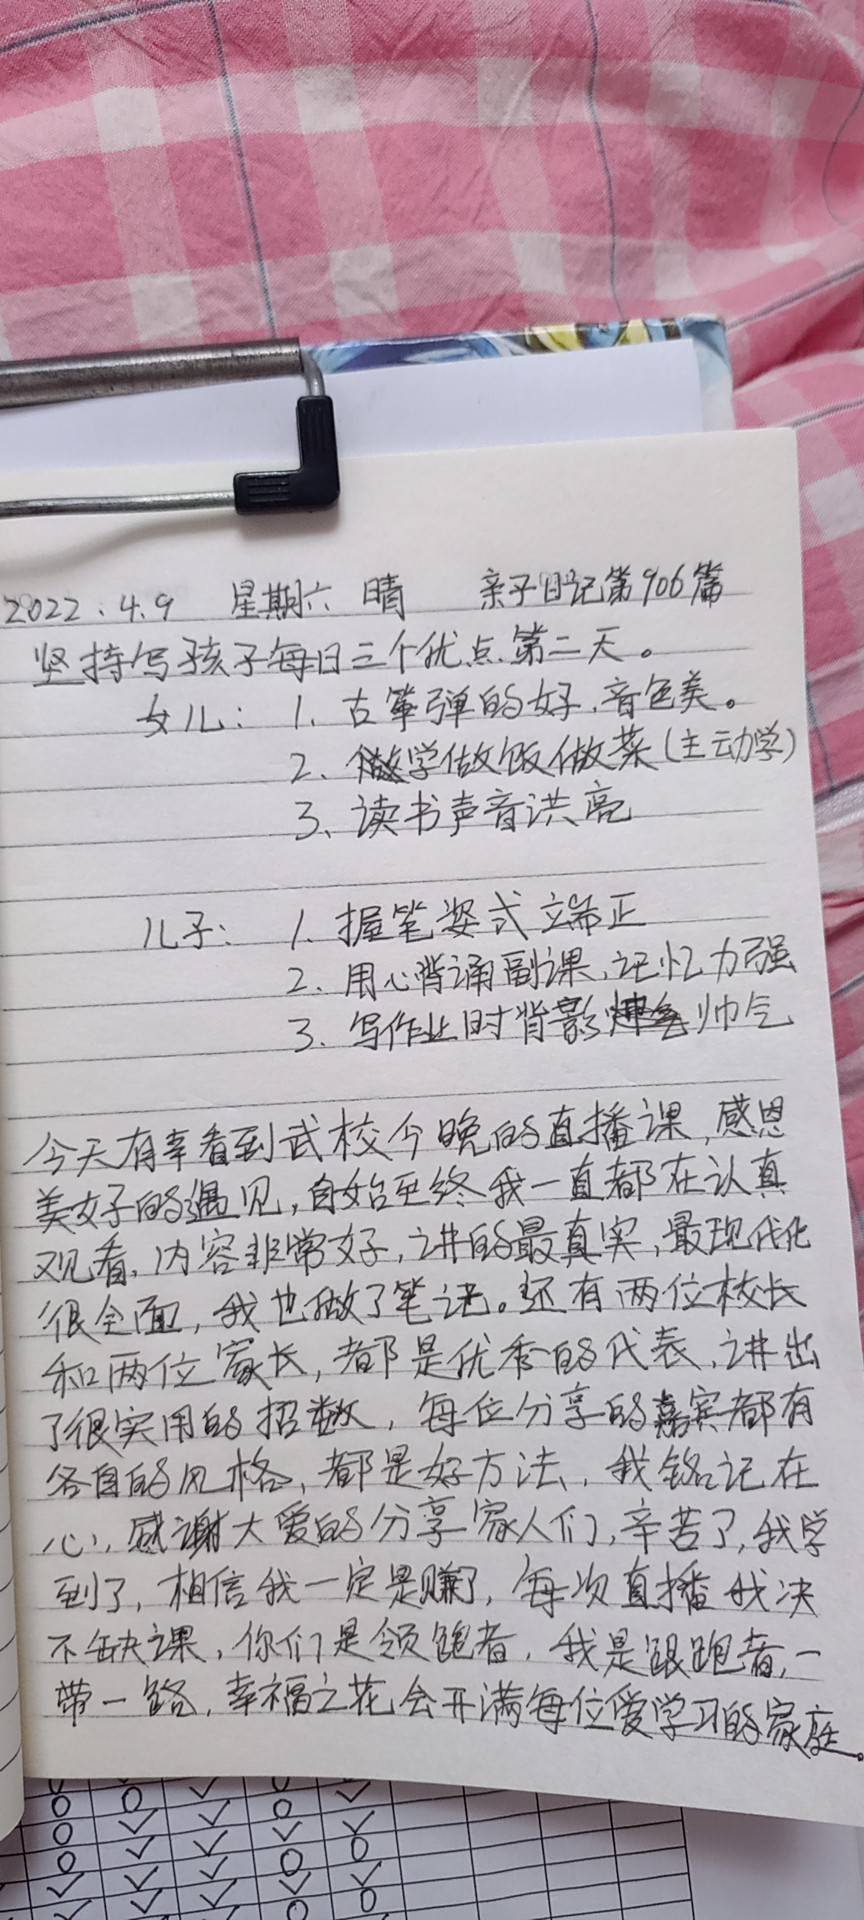 2022.4.9 星期六 晴 亲子日记第906篇
坚持写孩子每日三个优点.第二天。
女儿：1、古筝弹的好,音色美。
2、学做饭做菜(主动学)
3、读书声音洪亮
儿子：1、握笔姿式端正
2、用心背诵副课,记忆力强
3、写作业时背影帅气
今天有幸看到武校今晚的直播课,感恩
美好的遇见,自始至终我一直都在认真
观看,内容非常好,讲的最真实,最现代化
很全面,我也做了笔记。还有两位校长
和两位家长,都是优秀的代表,讲出
了很实用的招数,每位分享的嘉宾都有
各自的风格,都是好方法,我铭记在
心,感谢大爱的分享家人们,辛苦了,我学
到了,相信我一定是赚了,每次直播我决
不缺课,你们是领跑者,我是跟跑者,一
带一路,幸福之花会开满每位爱学习的家庭。